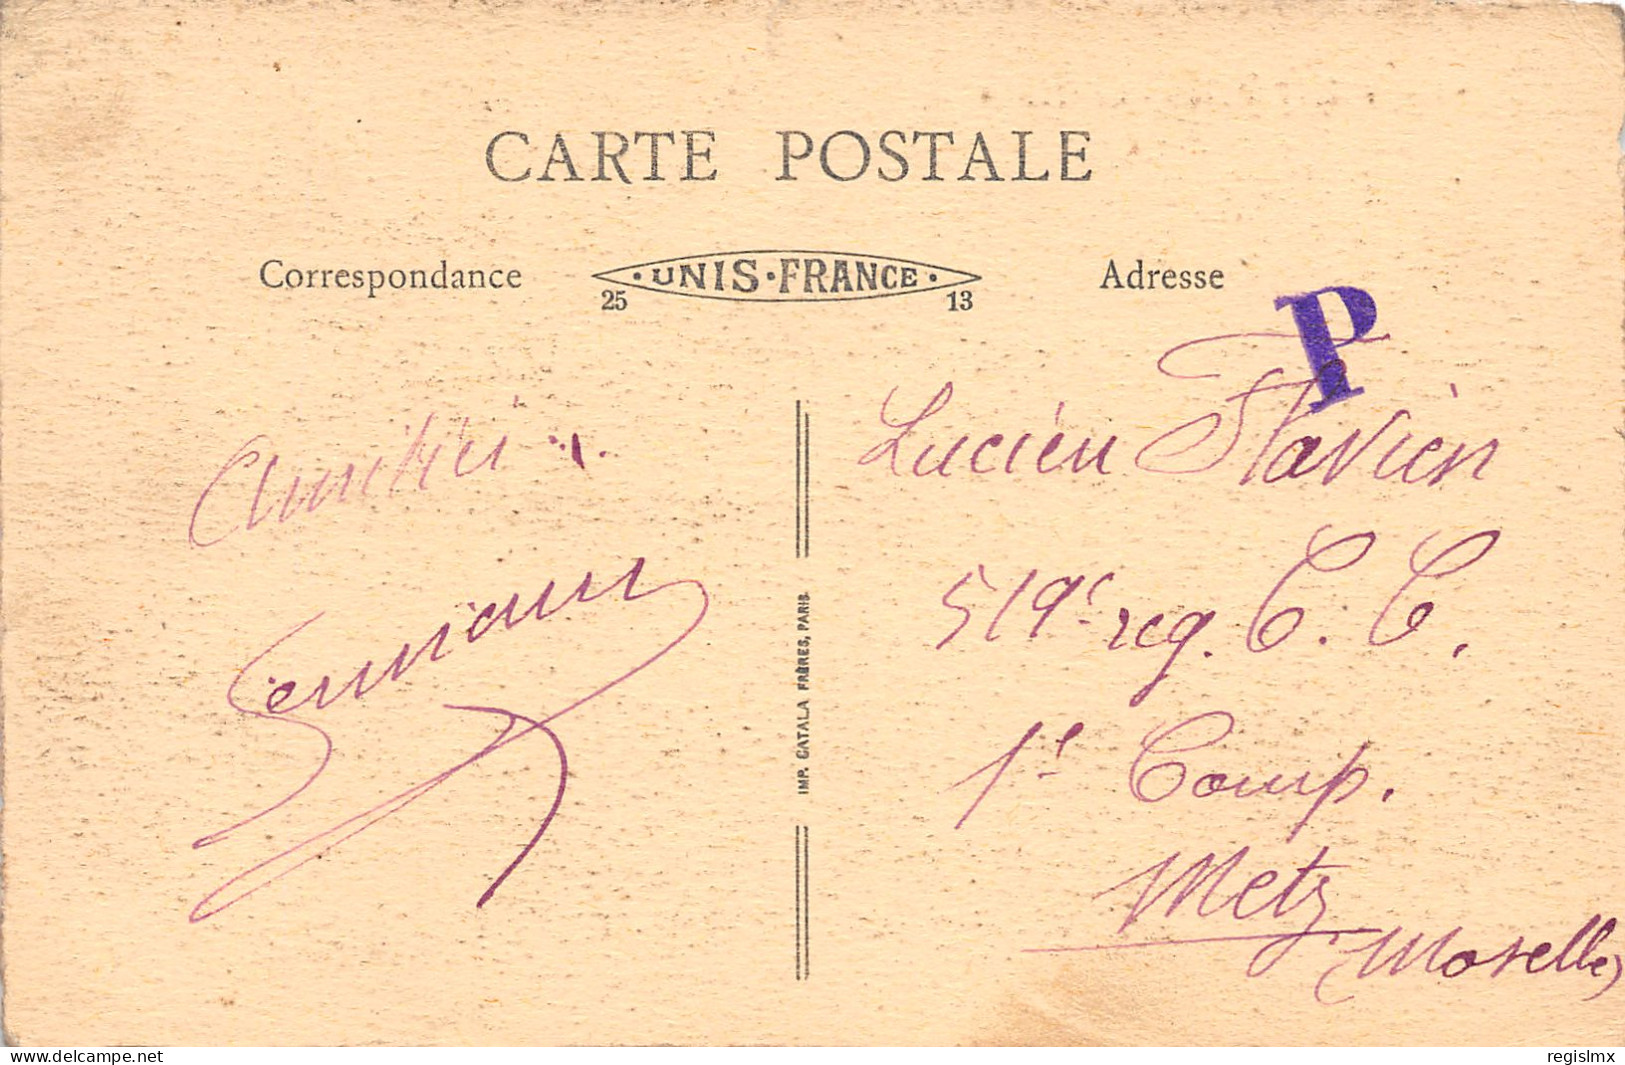 CARTE POSTALE
Correspondance
UNIS·FRANCE
25 13
Adresse
P
Amitiés
Lucien Flavien
519e reg. C. C.
1e Comp.
Metz
(Moselle)
IMP. CATALA FRÈRES, PARIS
www.delcampe.net
regislmx